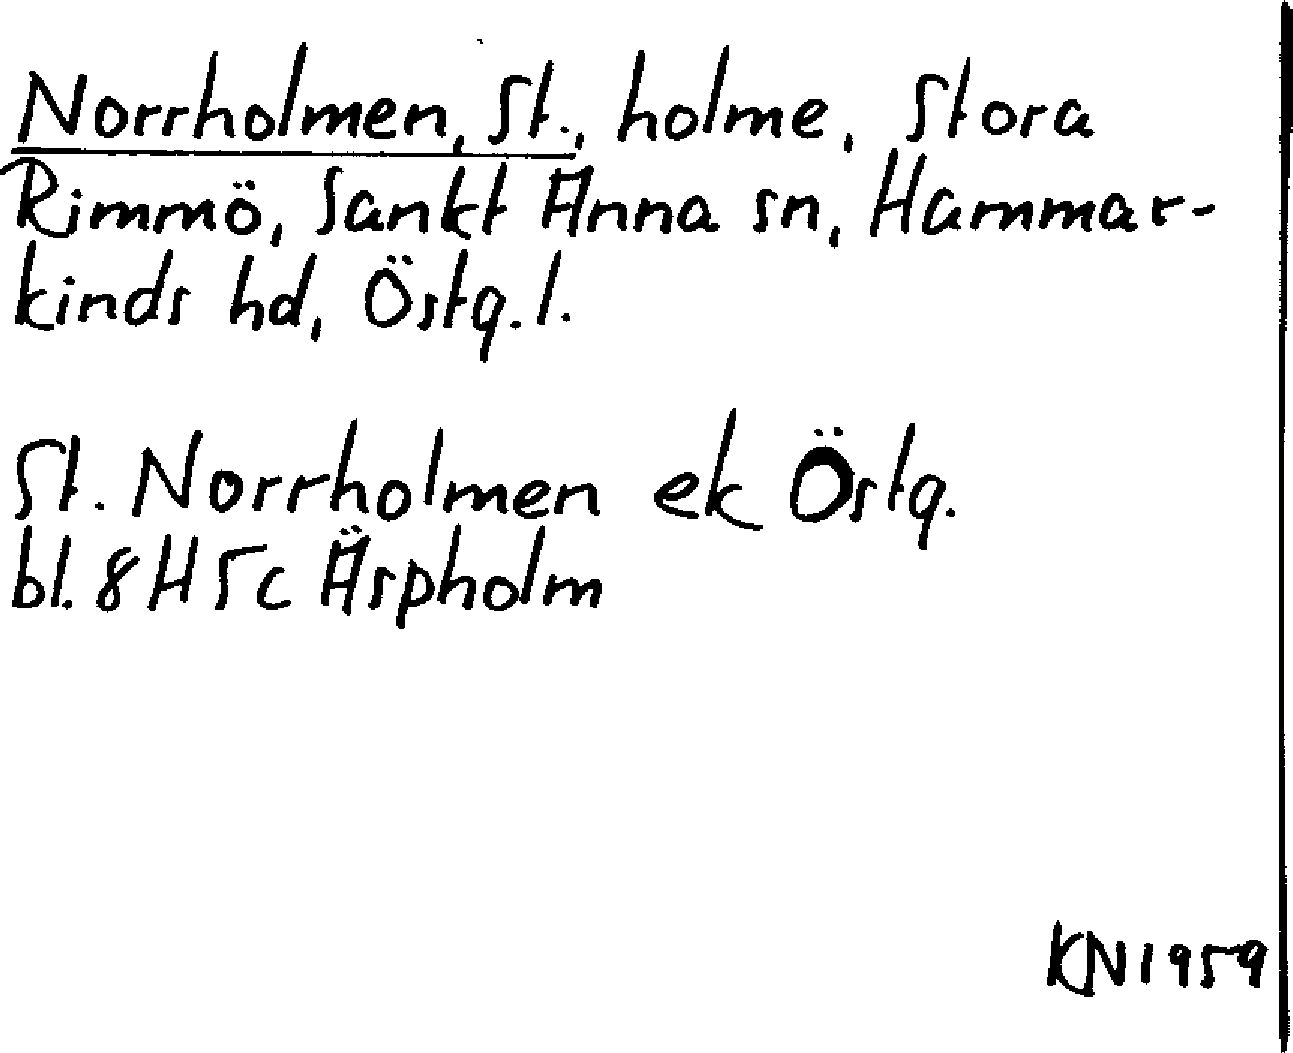 Norrholmen, St., holme, Stora
Rimmö, Sankt Anna sn, Hammar-
kinds hd, Östg.l.
St. Norrholmen ek Östg.
bl. 8H5c Äspholm
KN1959